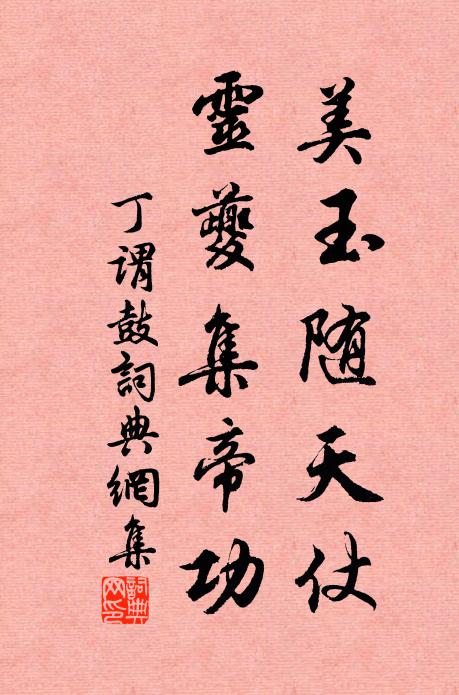 美玉随天仗
靈夔集帝功
丁谓鼓詞典網集
詞典網印